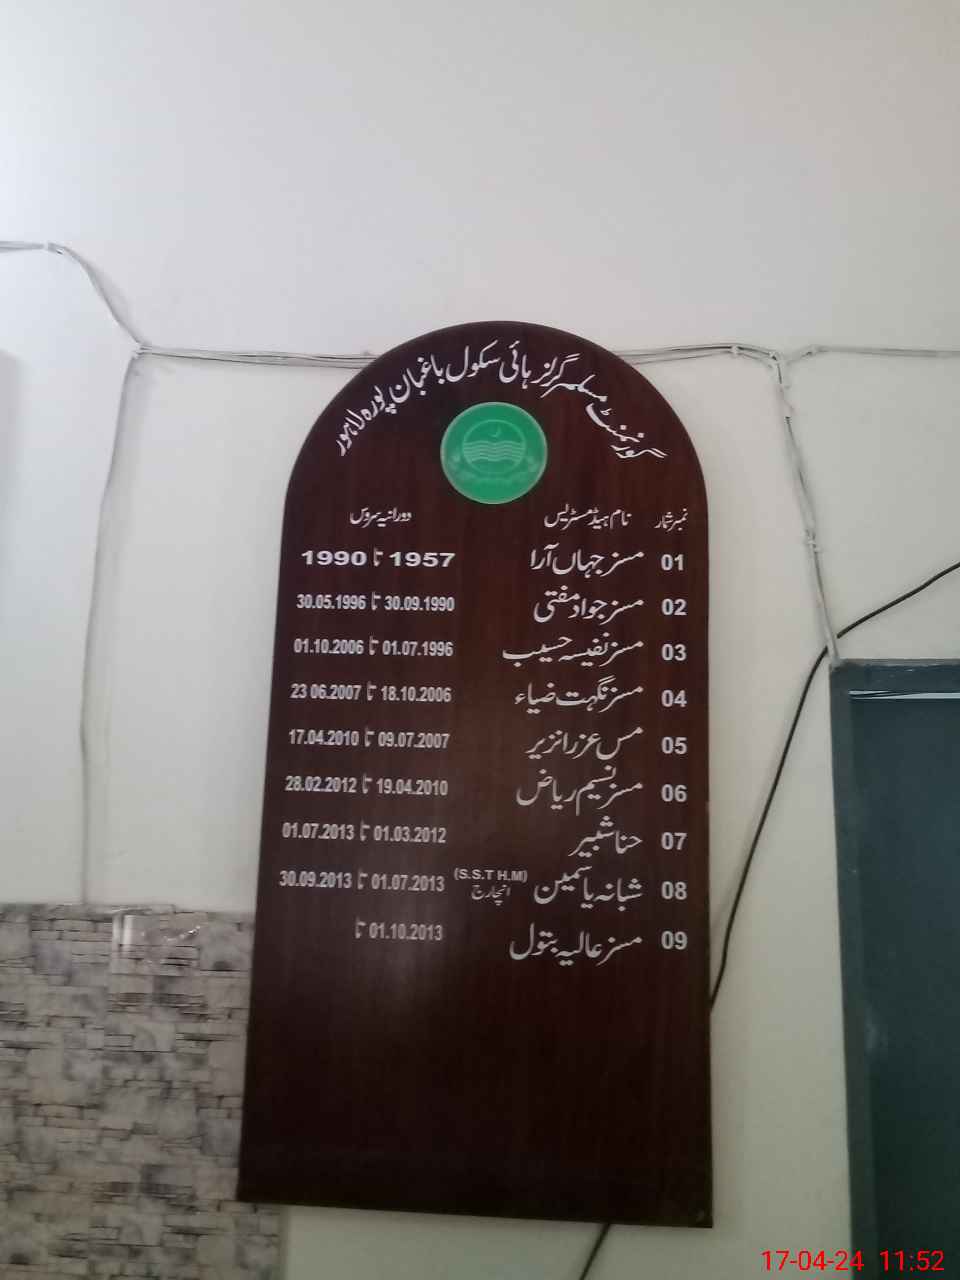 گورنمنٹ مسلم گرلز ہائی سکول باغبان پورہ لاہور
نمبر شمار نام ہیڈ مسٹریس دورانیہ سروس
01 مسز جہاں آرا 1957 تا 1990
02 مسز جواد مفتی 30.09.1990 تا 30.05.1996
03 مسز نفیسہ حسیب 01.07.1996 تا 01.10.2006
04 مسز نگہت ضیاء 18.10.2006 تا 23 06.2007
05 مس عزرا نزیر 09.07.2007 تا 17.04.2010
06 مسز نسیم ریاض 19.04.2010 تا 28.02.2012
07 حنا شبیر 01.03.2012 تا 01.07.2013
08 شبانہ یاسمین (S.S.T H.M) انچارج 01.07.2013 تا 30.09.2013
09 مسز عالیہ بتول 01.10.2013 تا
17-04-24 11:52